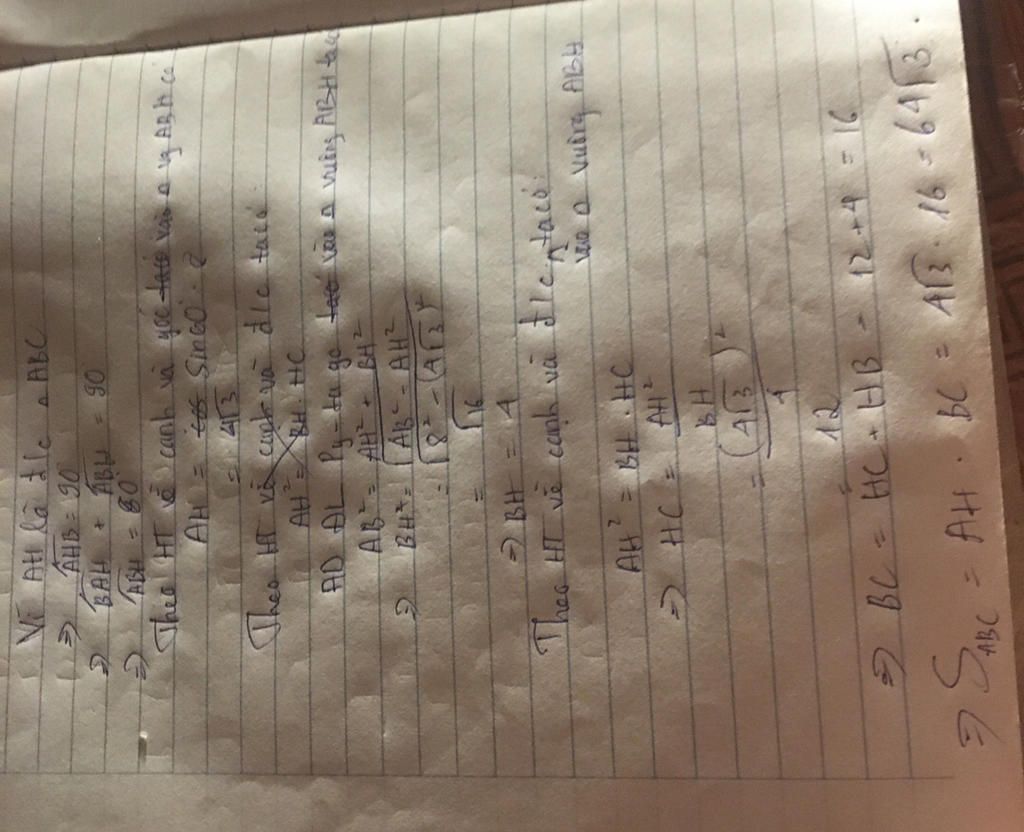 Vì AH là đ/c △ ABC
⇒ AHB = 90
⇒ BAH + ABH = 90
⇒ ABH = 60
Theo HT về cạnh và góc vào △ vg ABH có
AH = Sin60. 8
= 4√3
Theo HT về cạnh và đ/c ta có
AH² = BH . HC
AD ĐL Py-ta-go vào △ vuông ABH ta có
AB² = AH² + BH²
⇒ BH² = √AB² - AH²
= √8² - (4√3)²
= √16
⇒ BH = 4
Theo HT về cạnh và đ/c, ta có:
vào △ vuông ABH
AH² = BH . HC
⇒ HC = AH²
BH
= (4√3)²
4
= 12
⇒ BC = HC + HB = 12 + 4 = 16
⇒ S ABC = AH . BC = 4√3 . 16 = 64√3 .